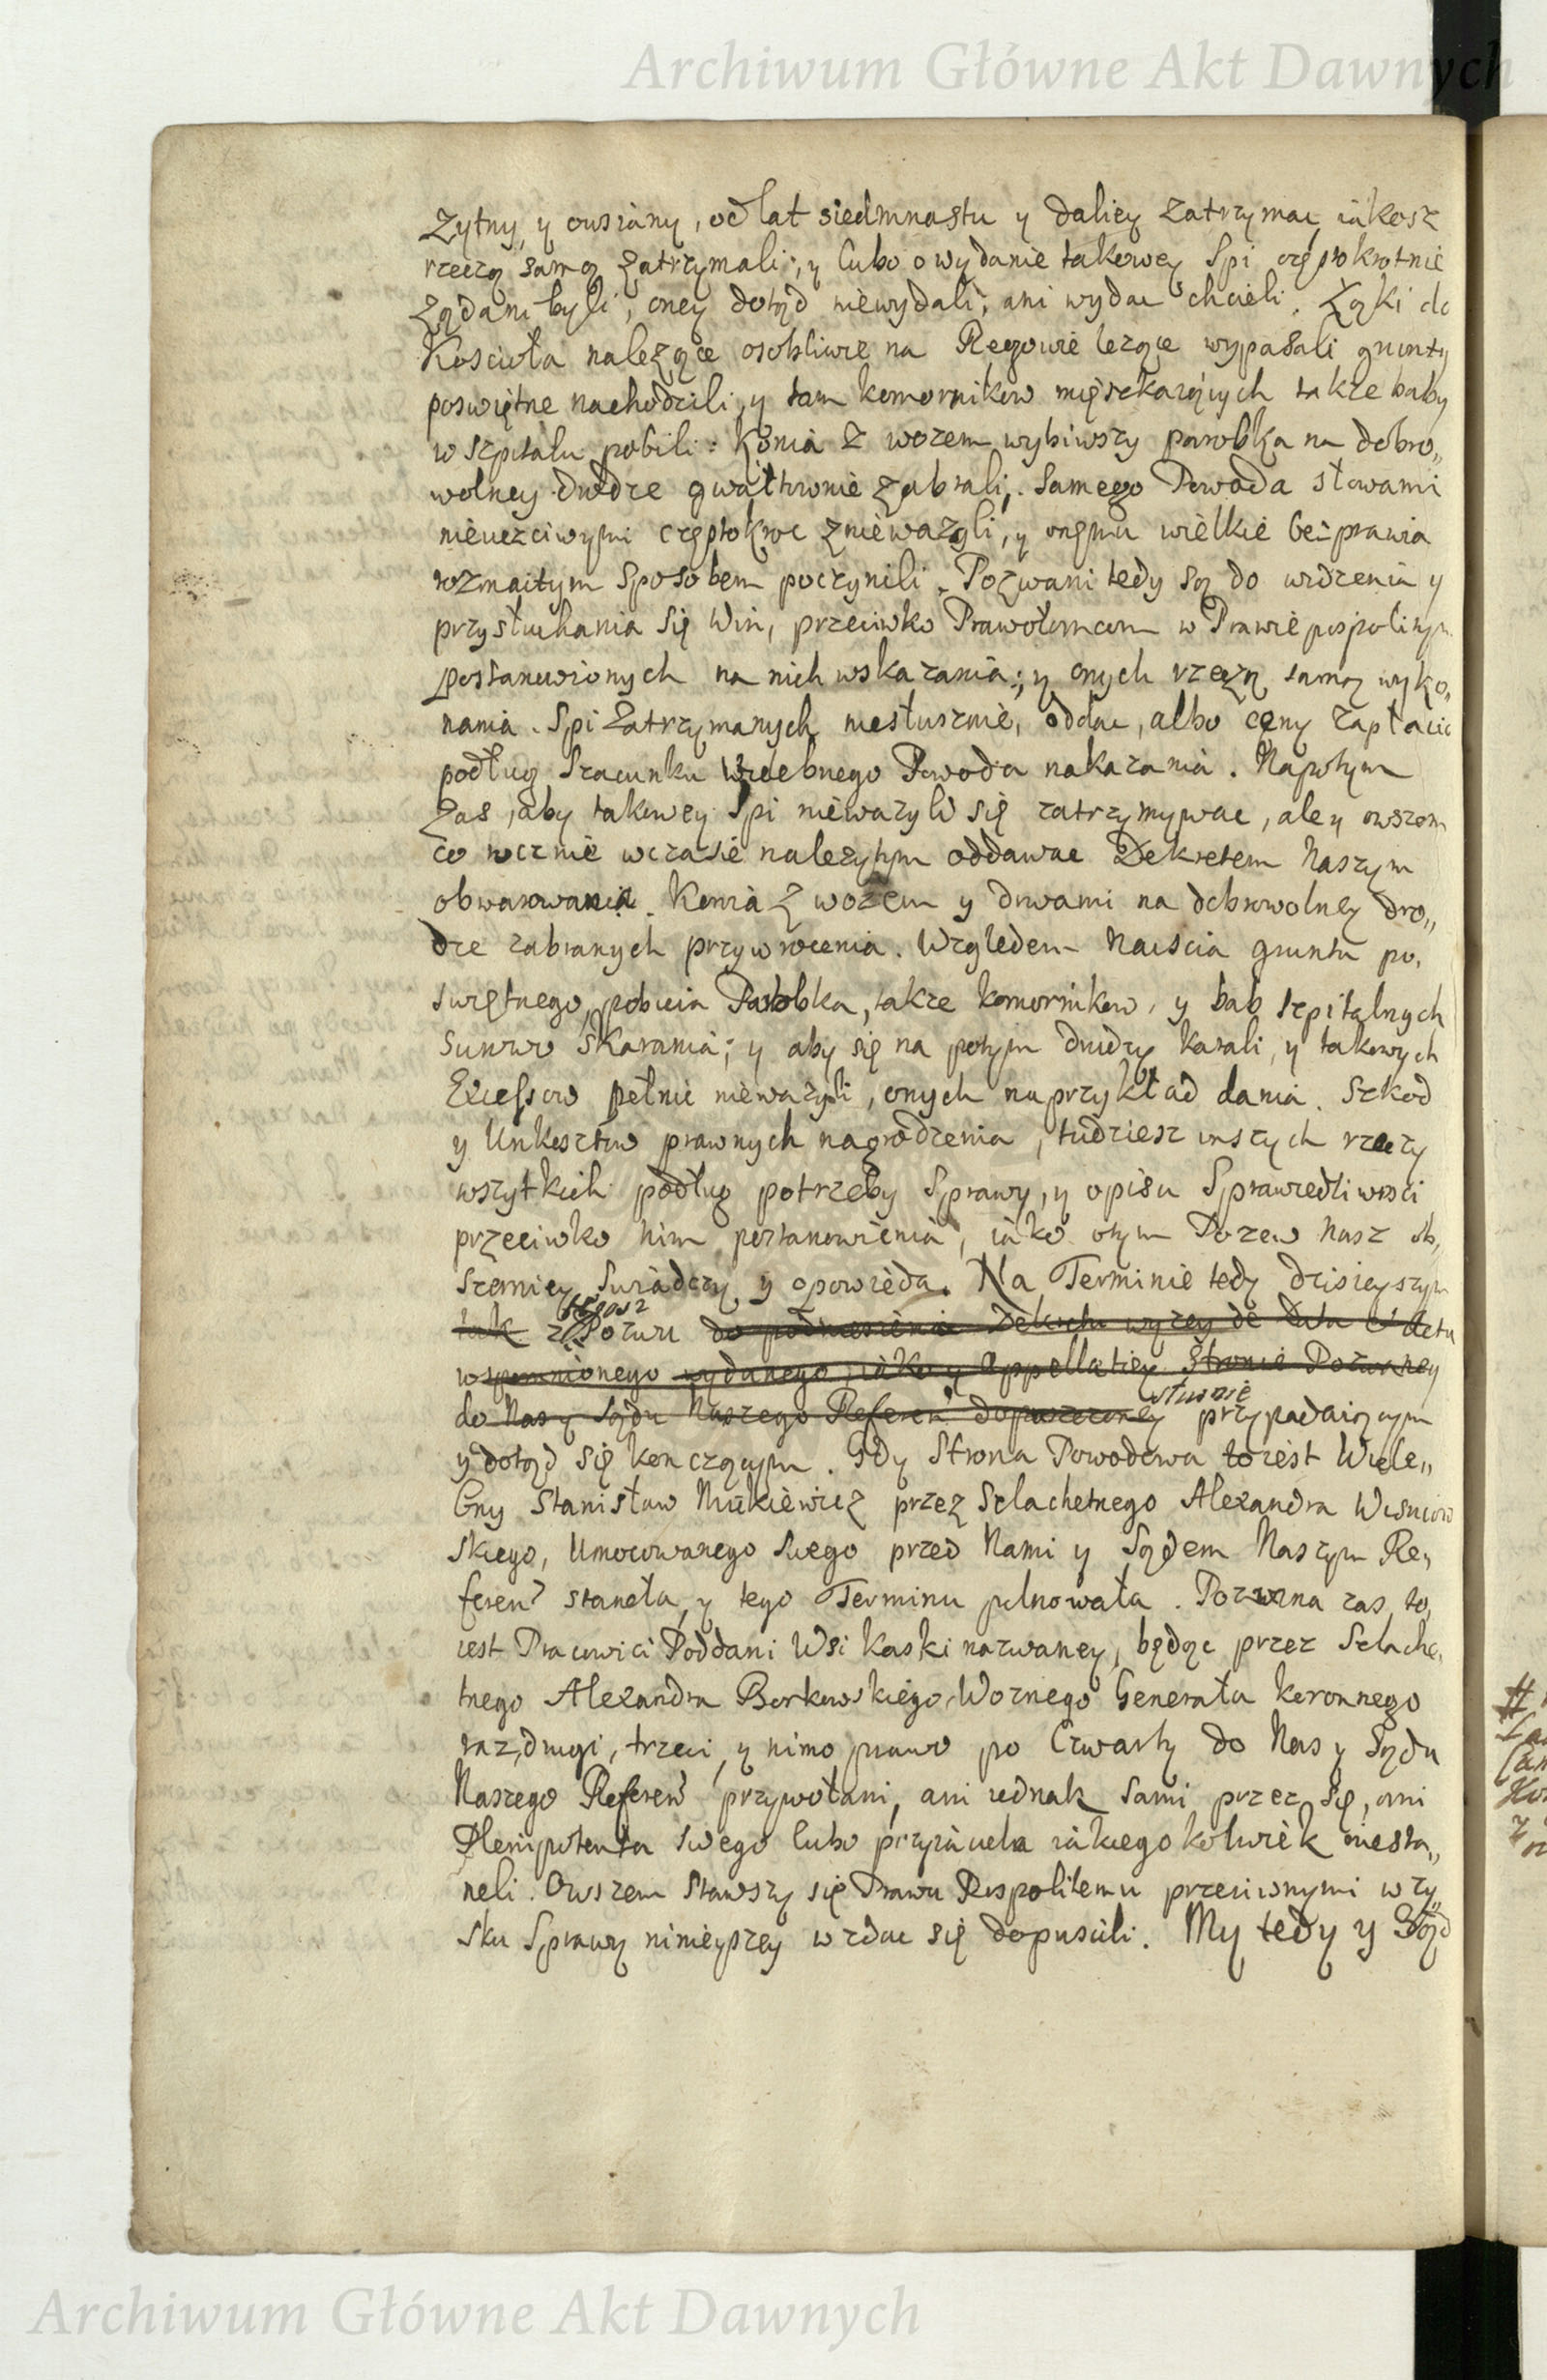 Archiwum Główne Akt Dawnych
Zytny, y owsiany, od lat siedmnastu y daliey zatrzymac, iakosz
rzeczą samą zatrzymali, y lubo o wydanie takowey Spi częstokrotnie
Ządani byli, oney dotąd niewydali, ani wydac chcieli. Łąki do
Koscioła nalezące osobliwie na Regowie lezące wypasali grunty
poswiętne nachodzili, y tam komornikow mięszkaiących takze baby
w szpitalu pobili: Konia z wozem wybiwszy parobka na dobro„
wolney drodze gwałtownie zabrali. Samego Powoda słowami
nieuczciwymi częstokroc zniewazyli, y onemu wielkie bezprawia
rozmaitym sposobem poczynili. Pozwani tedy są do widzenia y
przysłuchania się Win, przeciwko Prawołomcom w Prawie pospolitym
postanowionych na nich wskazania; y onych rzeczą samą wyko„
nania. Spi zatrzymanych niesłusznie, oddac, albo ceny zapłacic
podług Szacunku Wielebnego Powoda nakazania. Napotym
zas, aby takowey Spi niewazyli się zatrzymywac, ale y owszem
co rocznie wczasie nalezytym oddawac Dekretem Naszym
obwarowania. Konia z wozem y drwami na dobrowolney dro„
dze zabranych przywrocenia. Względem Naiscia gruntu po„
swiętnego, pobicia Parobka, takze komornikow, y bab szpitalnych
Surowo Skarania; y aby się na potym drudzy karali, y takowych
Excessow pełnic niewazyli, onych naprzykład dania. Szkod
y Unkosztow prawnych nagrodzenia, tudziesz inszych rzeczy
wszytkich podług potrzeby Sprawy, y opisu Sprawiedliwosci
przeciwko nim postanowienia, iako otym Pozew Nasz ob„
szerniey Swiadczy y opowieda. Na Terminie tedy dzisieyszym
tegosz
tak z Pozwu do podniesienia Dekretu wyzey de Data et Actu
wspomnionego wydanego, iako y Appellatiey Stronie Pozwaney
słusznie
do Nas y Sądu Naszego Referen dopuszczoney przypadaiącym
y dotąd się konczącym. Gdy Strona Powodowa to iest Wiele„
bny Stanisław Mickiewicz przez Szlachetnego Alexandra Wisniow
skiego, Umocowanego swego przed Nami y Sądem Naszym Re„
feren stanęła, y tego Terminu pilnowała. Pozwana zas, to
iest Pracowici Poddani Wsi Kaski nazwaney, będąc przez Szlache„
tnego Alexandra Borkowskiego, Woznego Generała Koronnego
raz, drugi, trzeci, y nimo prawo po Czwarty do Nas y Sądu
Naszego Referen przywołani, ani iednak sami przez się, ani
Plenipotenta swego lubo przyiaciela iakiegokolwiek niesta„
neli. Owszem stawszy się Prawu Pospolitemu przeciwnymi w zy„
sku Sprawy ninieyszey wzdac się dopuscili. My tedy y Sąd
Archiwum Główne Akt Dawnych